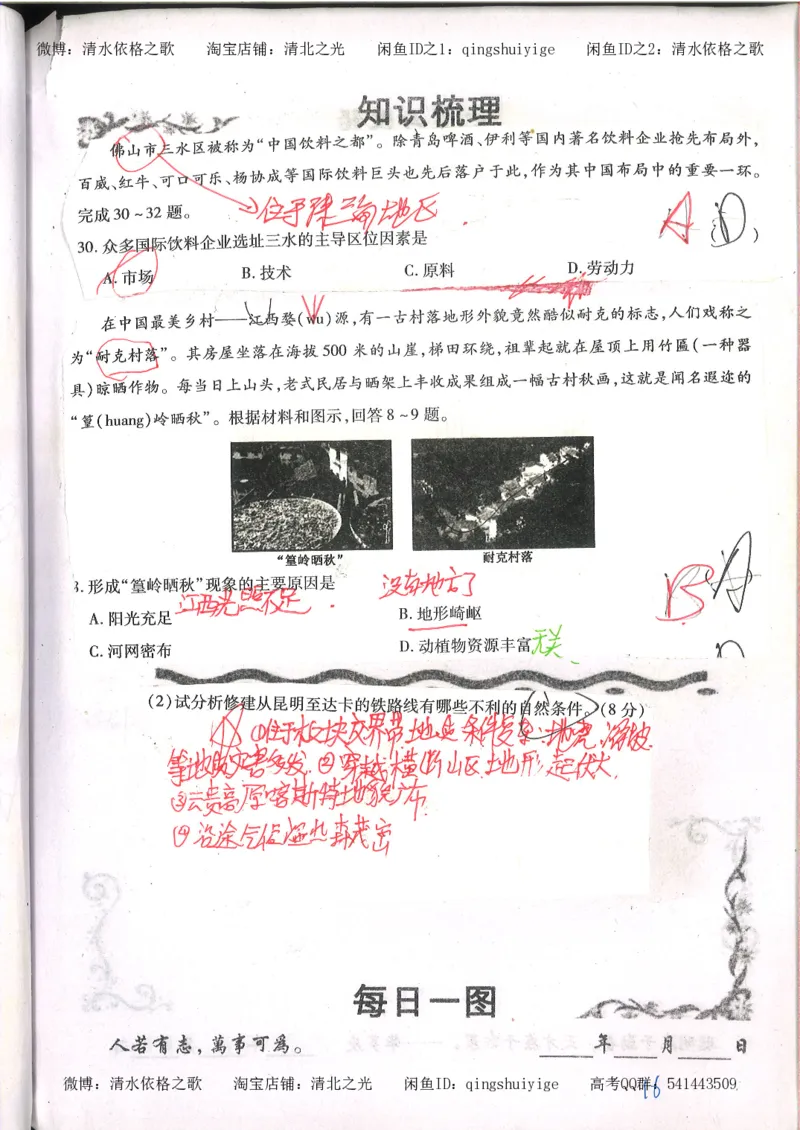 微博：清水依格之歌 淘宝店铺：清北之光 闲鱼ID之1：qingshuiyige 闲鱼ID之2：清水依格之歌
知识梳理
佛山市三水区被称为“中国饮料之都”。除青岛啤酒、伊利等国内著名饮料企业抢先布局外，
百威、红牛、可口可乐、杨协成等国际饮料巨头也先后落户于此，作为其中国布局中的重要一环。
完成30～32题。
位于珠三角地区
A (D)
30. 众多国际饮料企业选址三水的主导区位因素是
A. 市场 B. 技术 C. 原料 D. 劳动力
在中国最美乡村——江西婺(wu)源，有一古村落地形外貌竟然酷似耐克的标志，人们戏称之
为“耐克村落”。其房屋坐落在海拔500 米的山崖，梯田环绕，祖辈起就在屋顶上用竹匾(一种器
具)晾晒作物。每当日上山头，老式民居与晒架上丰收成果组成一幅古村秋画，这就是闻名遐迩的
“篁(huang)岭晒秋”。根据材料和图示，回答8～9题。
“篁岭晒秋” 耐克村落
8. 形成“篁岭晒秋”现象的主要原因是
没有地方了
B A
江西光照不足
A. 阳光充足 B. 地形崎岖
C. 河网密布 D. 动植物资源丰富
无关
(2)试分析修建从昆明至达卡的铁路线有哪些不利的自然条件。(8分)
①位于板块交界带，地质条件复杂，地震、滑坡
等地质灾害多发。②穿越横断山区，地形起伏大，
③云贵高原喀斯特地貌广布
④沿途气候湿热森茂密
每日一图
人若有志，萬事可為。 年 月 日
微博：清水依格之歌 淘宝店铺：清北之光 闲鱼ID：qingshuiyige 高考QQ群：541443509
16